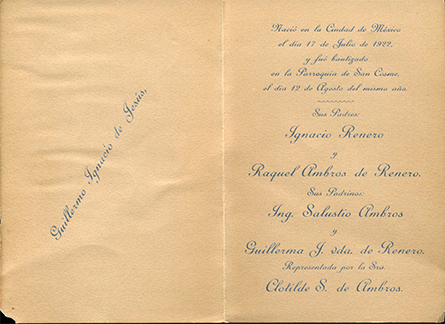 Guillermo Ignacio de Jesús,
Nació en la Ciudad de México
el día 17 de Julio de 1922,
y fué bautizado
en la Parroquia de San Cosme,
el día 12 de Agosto del mismo año.
Sus Padres:
Ignacio Renero
y
Raquel Ambros de Renero.
Sus Padrinos:
Ing. Salustio Ambros
y
Guillerma J. vda. de Renero.
Representada por la Sra.
Clotilde S. de Ambros.